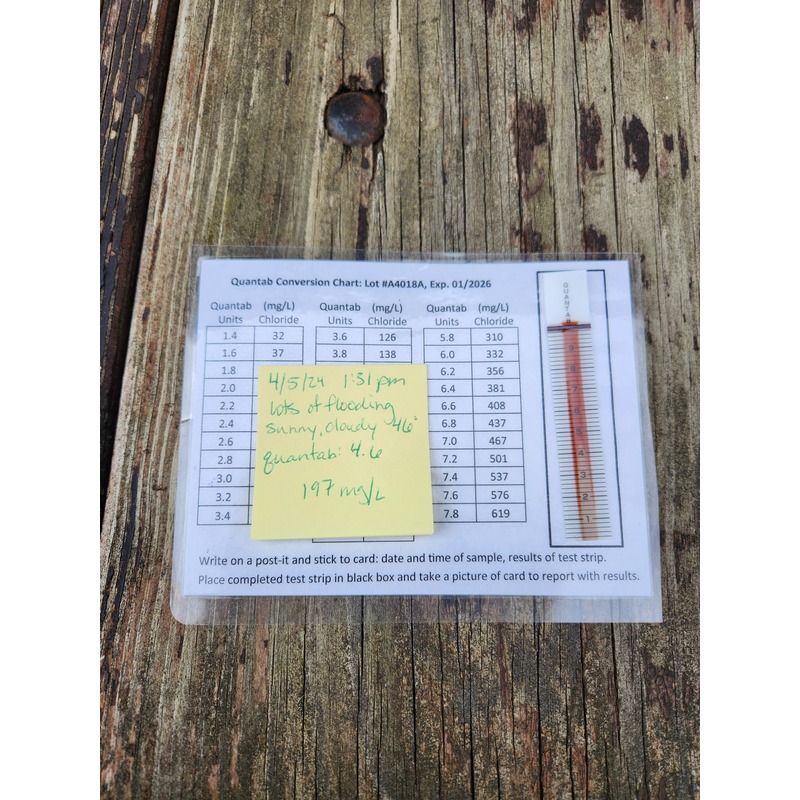 Quantab Conversion Chart: Lot #A4018A, Exp. 01/2026
Quantab (mg/L) Quantab (mg/L) Quantab (mg/L)
Units Chloride Units Chloride Units Chloride
1.4 32 3.6 126 5.8 310
1.6 37 3.8 138 6.0 332
1.8 6.2 356
2.0 6.4 381
2.2 6.6 408
2.4 6.8 437
2.6 7.0 467
2.8 7.2 501
3.0 7.4 537
3.2 7.6 576
3.4 7.8 619
4/5/24 1:31 pm
lots of flooding
sunny, cloudy 46°
quantab: 4.6
197 mg/L
Write on a post-it and stick to card: date and time of sample, results of test strip.
Place completed test strip in black box and take a picture of card to report with results.
QUANTAB
9
8
7
6
5
4
3
2
1